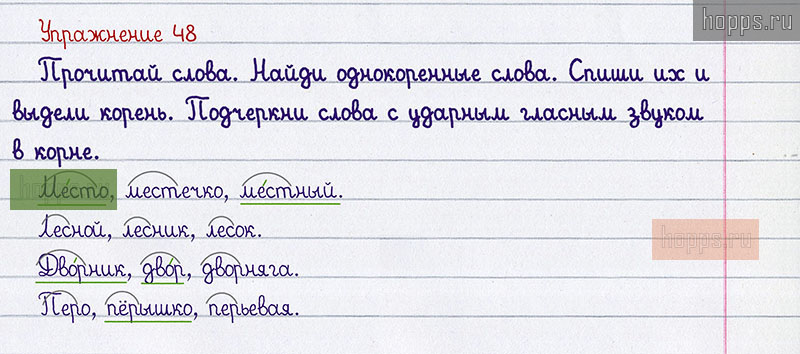 hopps.ru
Упражнение 48
Прочитай слова. Найди однокоренные слова. Спиши их и
выдели корень. Подчеркни слова с ударным гласным звуком
в корне.
Ме́сто, местечко, ме́стный.
Лесной, лесник, лесок.
hopps.ru
Дво́рник, дво́р, дворняга.
Перо, пёрышко, перьевая.